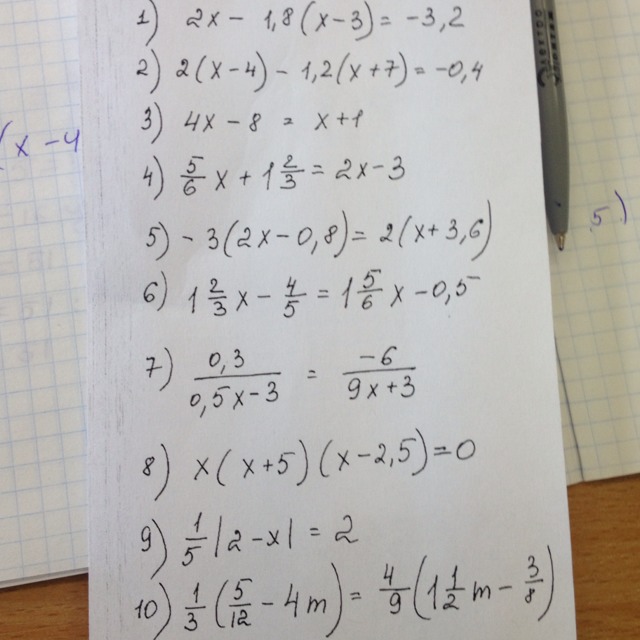 1) 2x - 1,8(x-3) = -3,2
2) 2(x-4) - 1,2(x+7) = -0,4
3) 4x - 8 = x+1
4) 5/6 x + 1 2/3 = 2x-3
5) -3(2x-0,8) = 2(x+3,6)
6) 1 2/3 x - 4/5 = 1 5/6 x - 0,5
7) 0,3/(0,5x-3) = -6/(9x+3)
8) x(x+5)(x-2,5)=0
9) 1/5 |2-x| = 2
10) 1/3 (5/12 - 4m) = 4/9 (1 1/2 m - 3/8)
(x-4
5)